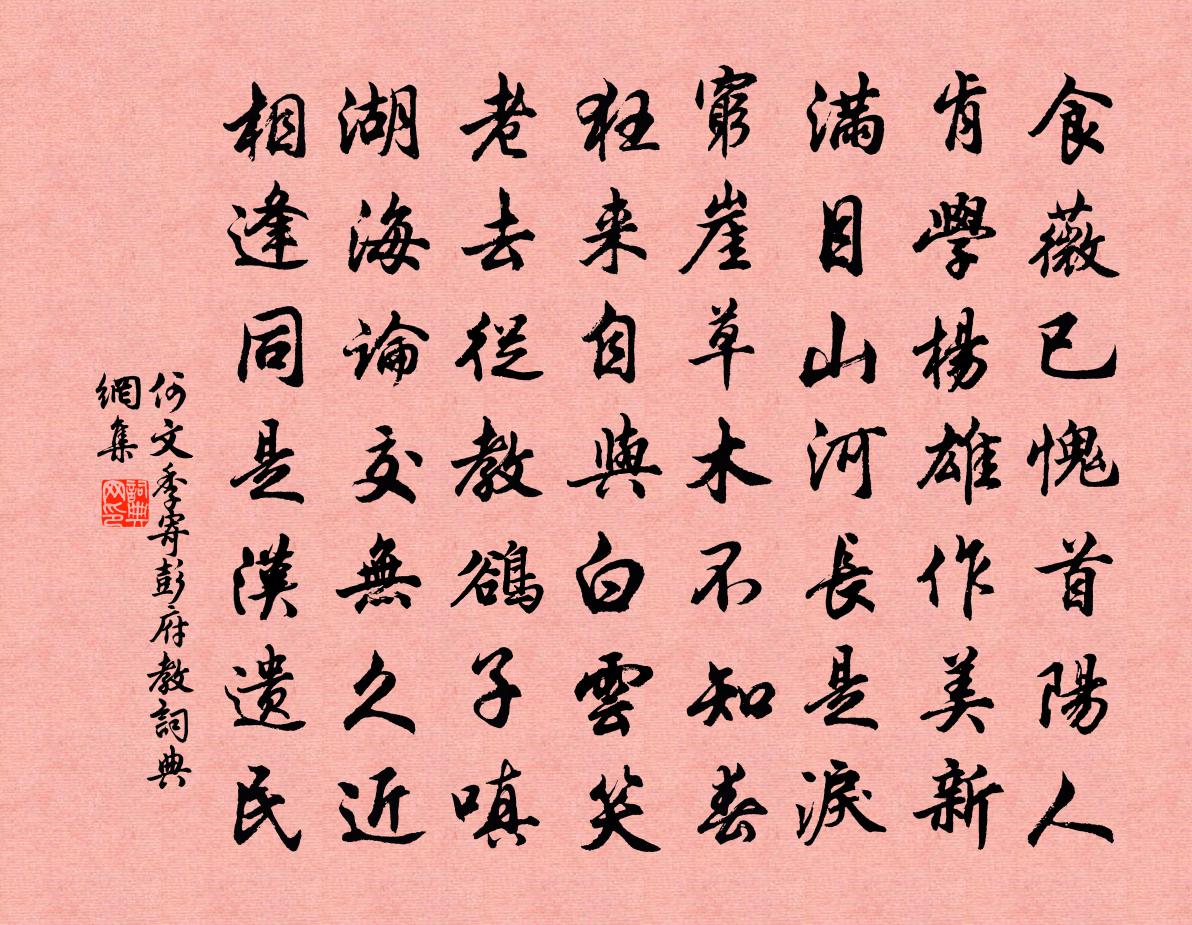 食薇已愧首陽人
肯學楊雄作美新
滿目山河長是淚
窮崖草木不知春
狂来自與白雲笑
老去從教鶴子嗔
湖海論交無久近
相逢同是漢遺民
何文季寄彭府教詞典
網集
詞典网印